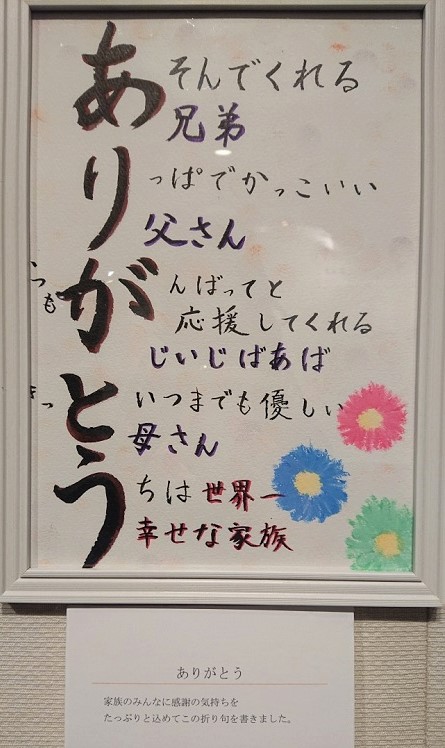 あそんでくれる
兄弟
りっぱでかっこいい
父さん
いつも
がんばってと
応援してくれる
じいじばあば
きっ
といつまでも優しい
母さん
うちは世界一
幸せな家族
ありがとう
家族のみんなに感謝の気持ちを
たっぷりと込めてこの折り句を書きました。